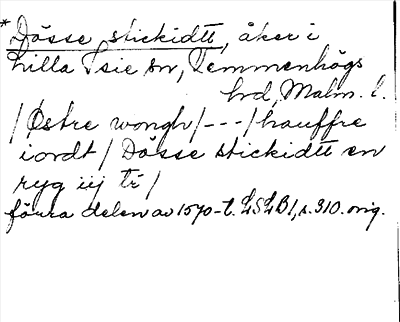 *Dösse stickidtt, åker i
Lilla Isie sn, Vemmenhögs
hrd, Malm. l.
/Østre wongh/---/hauffre
iordt/ Dösse stickidtt en
ryg iij tr̄/
förra delen av 1570-t. LSLB1, s. 310. orig.